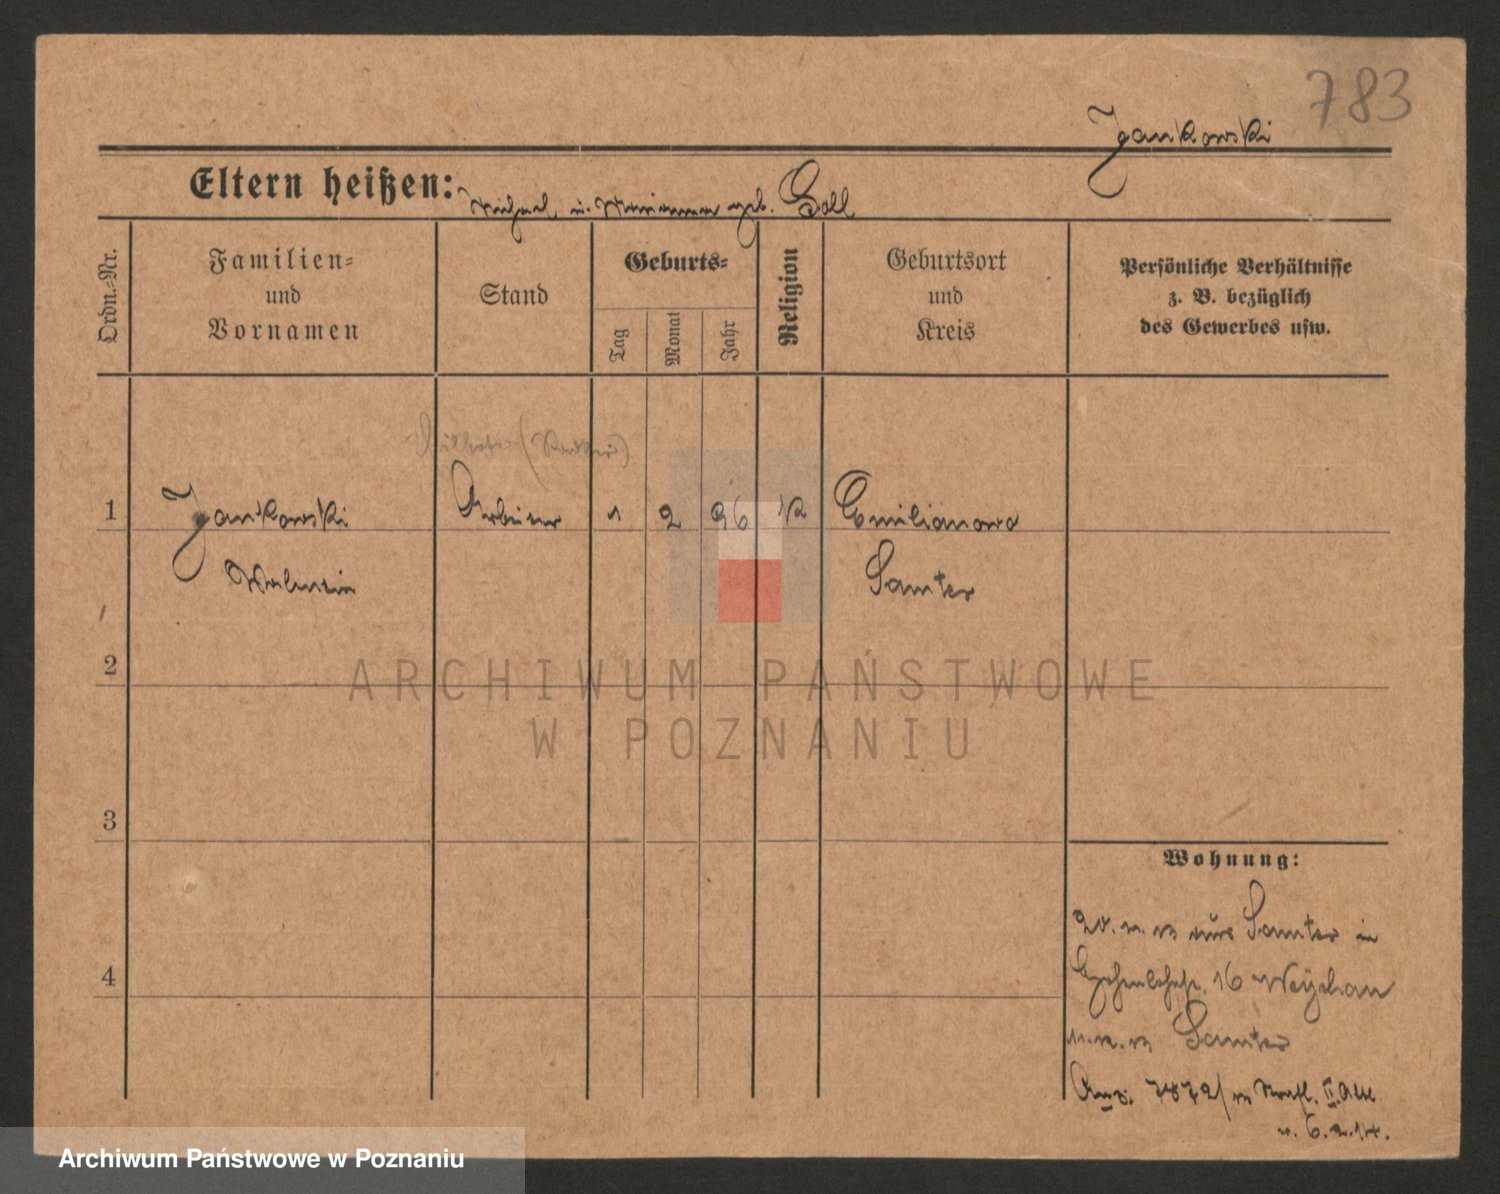 783
Jankowski
Eltern heißen: Michael u. Marianna geb. Gall
Ordn.-Nr.
Familien-
und
Vornamen
Stand
Geburts-
Tag
Monat
Jahr
Religion
Geburtsort
und
Kreis
Persönliche Verhältnisse
z. B. bezüglich
des Gewerbes usw.
1
Jankowski
Arbeiter
1
2
96
K
Emilianowo
Samter
2
3
4
Wohnung:
aus Samter in
16 Weychan
Samter
7872/13 II. Abt
v. 6.2.14.
ARCHIWUM PAŃSTWOWE
W POZNANIU
Archiwum Państwowe w Poznaniu